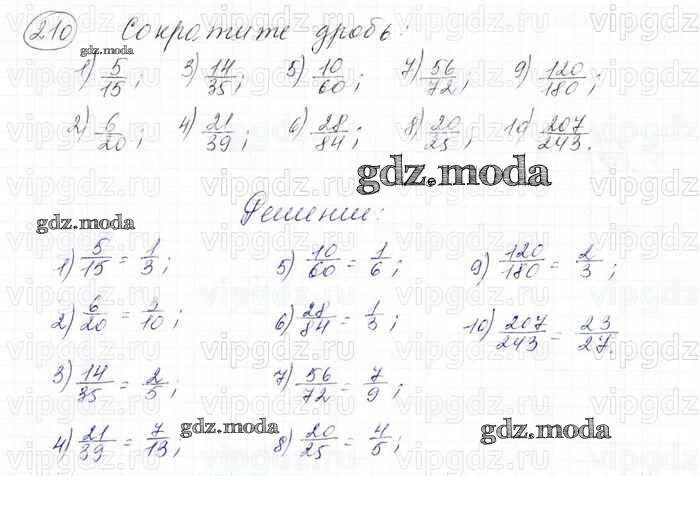 210 Сократите дробь:
gdz.moda
1) 5/15; 3) 14/35; 5) 10/60; 7) 56/72; 9) 120/180;
2) 6/20; 4) 21/39; 6) 28/84; 8) 20/25; 10) 207/243.
gdz.moda
gdz.moda
Решение:
1) 5/15 = 1/3; 5) 10/60 = 1/6; 9) 120/180 = 2/3;
2) 6/20 = 3/10; 6) 28/84 = 1/3; 10) 207/243 = 23/27.
3) 14/35 = 2/5; 7) 56/72 = 7/9;
4) 21/39 = 7/13; 8) 20/25 = 4/5;
gdz.moda
gdz.moda